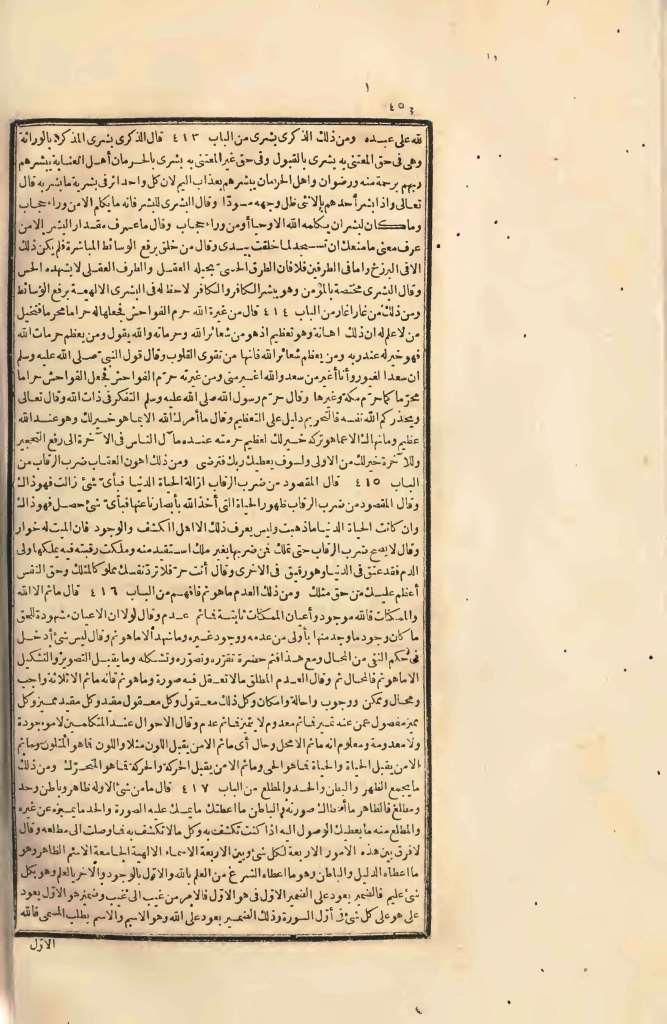 ٤٥٣
لله على عبيده ومن ذلك الذكرى بشرى من الباب ٤١٣ قال الذكرى بشرى المذكر بالوراثة
وهى فى حق المعتنى به بشرى بالقبول وفى حق غير المعتنى به بشرى بالحرمان أهل العناية يبشرهم
ربهم برحمة منه ورضوان وأهل الحرمان يبشرهم بعذاب اليم لان كل واحد اثر فى بشربه ما بشر به قال
تعالى واذا بشر أحدهم بالانثى ظل وجهه مسودا وقال البشرى للبشر فانه ما يكلم الا من وراء حجاب
وما كان لبشر ان يكلمه الله الا وحيا أو من وراء حجاب وقال ما عرف مقدار البشر الا من
عرف معنى ما منعك ان تسجد لما خلقت بيدى وقال من خلق برفع الوسائط المباشرة فلم يكن ذلك
الا فى البرزخ واما فى الطرفين فلا فان الطرق الحسى يحيله العقل والطرف العقلى لا يشهده الحس
وقال البشرى مختصة بالمؤمن وهو يبشر الكافر والكافر لا حظ له فى البشرى الالهية برفع الوسائط
ومن ذلك من غار اغار من الباب ٤١٤ قال من غيرة الله حرم الفواحش فجعلها له حراما محرما فتخيل
من لا علم له ان ذلك اهانة وهو تعظيم اذ هو من شعائر الله وحرماته والله يقول ومن يعظم حرمات الله
فهو خير له عند ربه ومن يعظم شعائر الله فانها من تقوى القلوب وقال قول النبى صلى الله عليه وسلم
ان سعدا لغيور وأنا أغير من سعد والله اغير منى ومن غيرته حرم الفواحش فجعل الفواحش حراما
محرما كما حرم مكة وغيرها وقال حرم رسول الله صلى الله عليه وسلم التفكر فى ذات الله وقال تعالى
ويحذركم الله نفسه فالتحريم دليل على التعظيم وقال ما أمرك الله الا بما هو خير لك وهو عند الله
عظيم وما نهاك الا عما هو تركه خير لك لعظيم حرمته عنده مآل الناس فى الآخرة الى رفع التحجير
وللآخرة خير لك من الاولى ولسوف يعطيك ربك فترضى ومن ذلك اهون العقاب ضرب الرقاب من
الباب ٤١٥ قال المقصود من ضرب الرقاب ازالة الحياة الدنيا فبأى شئ زالت فهو ذاك
وقال المقصود من ضرب الرقاب ظهور الحياة التى أخذ الله بأبصارنا عنها فبأى شئ حصل فهو ذاك
وان كانت الحياة الدنيا ما ذهبت وليس يعرف ذلك الا اهل الكشف والوجود فان الميت له خوار
وقال لا يصح ضرب الرقاب حتى تملك فمن ضربها بغير ملك استقيد منه وملكت رقبته فيه يملكها ولى
الدم فقد عتق فى الدنيا وهو رقيق فى الاخرى وقال أنت حر فلا ترد نفسك مملوكا لمثلك وحق النفس
أعظم عليك من حق مثلك ومن ذلك العدم ما هو ثم فافهم من الباب ٤١٦ قال ما ثم الا الله
والممكنات فالله موجود وأعيان الممكنات ثابتة فما ثم عدم وقال لولا ان الاعيان مشهودة للحق
ما كان وجود ما وجد منها بأولى من عدمه ووجود غيره وما شهد الا ما هو ثم وقال ليس شئ أدخل
فى حكم النفى من المحال ومع هذا فثم حضرة تقرره وتصوره وتشكله وما يقبل التصوير والتشكيل
الا ما هو ثم فالمحال ثم وقال العدم المطلق ما لا تعقل فيه صورة وما هو ثم فانه ما ثم الا ثلاثة واجب
ومحال وممكن ووجوب واحالة وامكان وكل ذلك معقول وكل معقول مقيد وكل مقيد مميز وكل
مميز مفصول عمن عنه تميز فما ثم معدوم لا يتميز فما ثم عدم وقال الاحوال عند المتكلمين لا موجودة
ولا معدومة ومعلوم انه ما ثم الا محل وحال أى ما ثم الا من يقبل اللون مثلا واللون فما هو المتلون وما ثم
الا من يقبل الحياة والحياة فما هو الحى وما ثم الا من يقبل الحركة والحركة فما هو المتحرك ومن ذلك
ما يجمع الظهر والبطن والحد والمطلع من الباب ٤١٧ قال ما من شئ الا وله ظاهر وباطن وحد
ومطلع فالظاهر ما أعطاك صورته والباطن ما اعطاك ما يمسك عليه الصورة والحد ما يميزه عن غيره
والمطلع منه ما يعطيك الوصول اليه اذا كنت تكشف به وكل ما لا تكشف به فما وصلت الى مطلعه وقال
لا فرق بين هذه الامور الاربعة لكل شئ وبين الاربعة الاسماء الالهية الجامعة الاسم الظاهر وهو
ما اعطاه الدليل والباطن وهو ما اعطاه الشرع من العلم بالله والاول بالوجود والآخر بالعلم وهو بكل
شئ عليم فالضمير يعود على الضمير الاول فى هو الاول فالامر من غيب الى غيب وضمير هو الاول يعود
على هو على كل شئ فى أول السورة وذلك الضمير يعود على الله وهو الاسم والاسم يطلب المسمى فالله
الاول